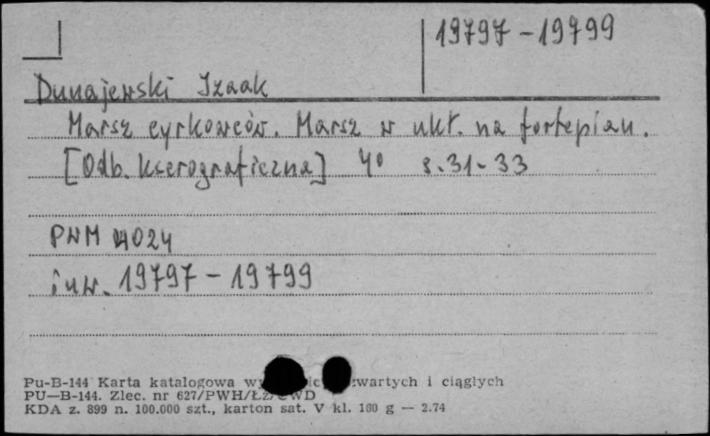 19797-19799
Dunajewski Izaak
Marsz cyrkowców. Marsz w ukł. na fortepian.
[Odb. kserograficzna] 4° s. 31-33
PWM 4024
inw. 19797-19799
Pu-B-144 Karta katalogowa zwartych i ciągłych
PU—B-144. Zlec. nr 627/PWH/ŁZ/CWD
KDA z. 899 n. 100.000 szt., karton sat. V kl. 160 g — 2.74